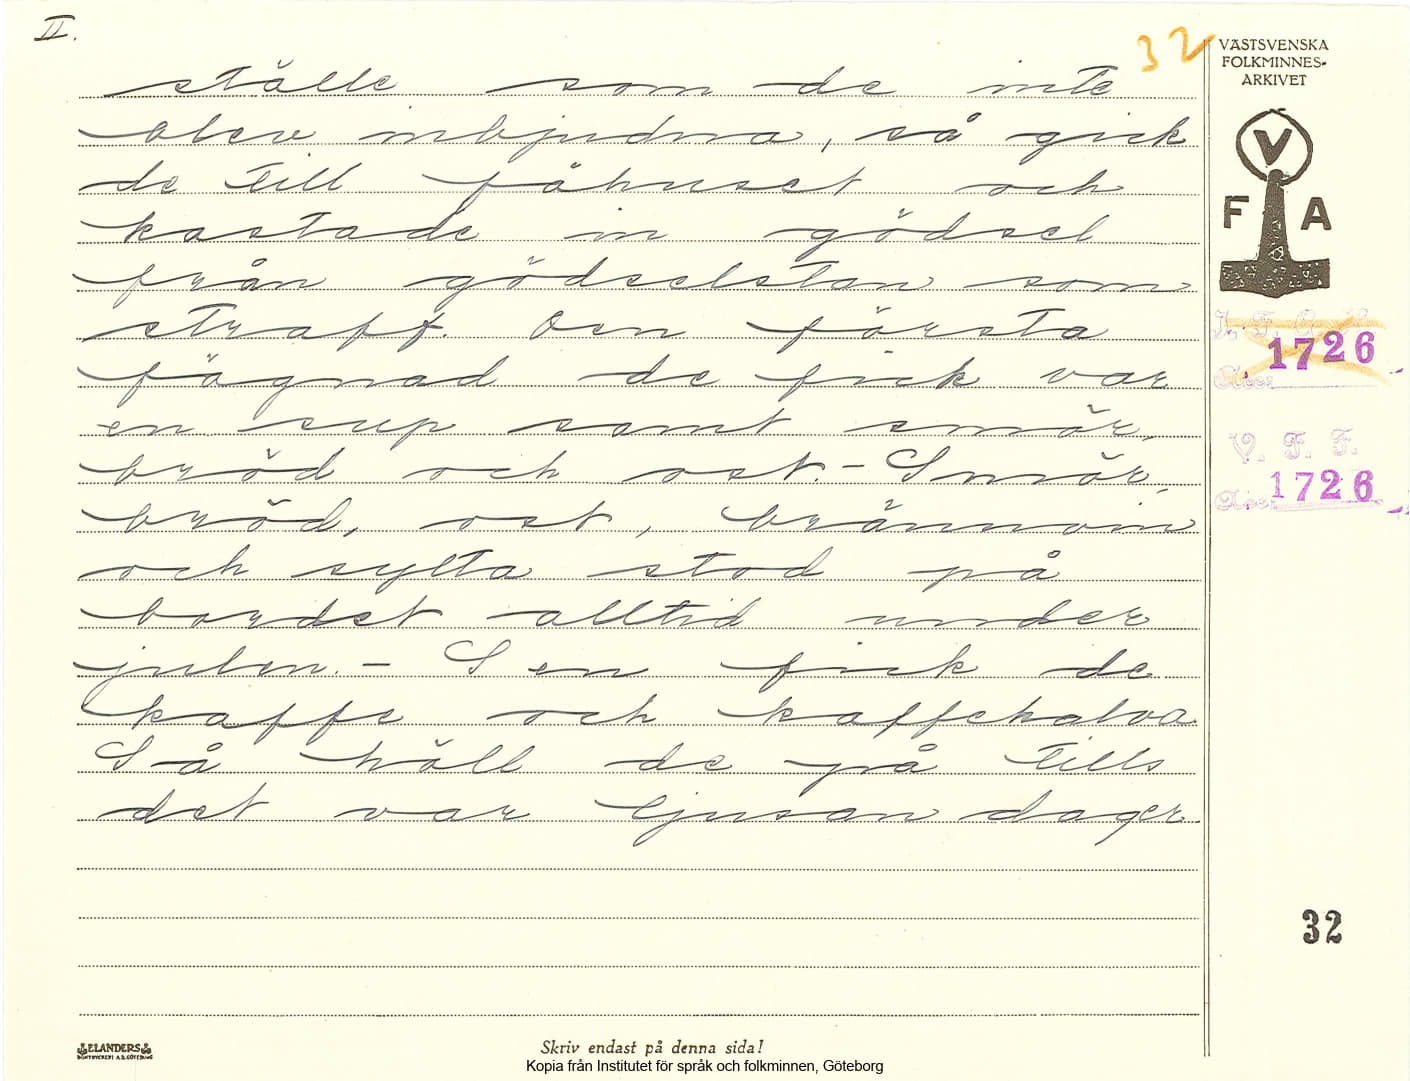 II.
32
VÄSTSVENSKA
FOLKMINNES-
ARKIVET
V
F A
ställe som de inte
blev inbjudna, så gick
de till fähuset och
kastade in gödsel
från gödselstan som
straff. Den första
fägnad de fick var
en sup samt smör,
bröd och ost. - Smör,
bröd, ost, brännvin
och sylta stod på
bordet alltid under
julen. - Sen fick de
kaffe och kaffehalva
Så höll de på tills
det var ljusan dager
1726
Acc:
V. F. F.
Acc: 1726
32
ELANDERS
BOKTRYCKERI A.B. GÖTEBORG
Skriv endast på denna sida!
Kopia från Institutet för språk och folkminnen, Göteborg